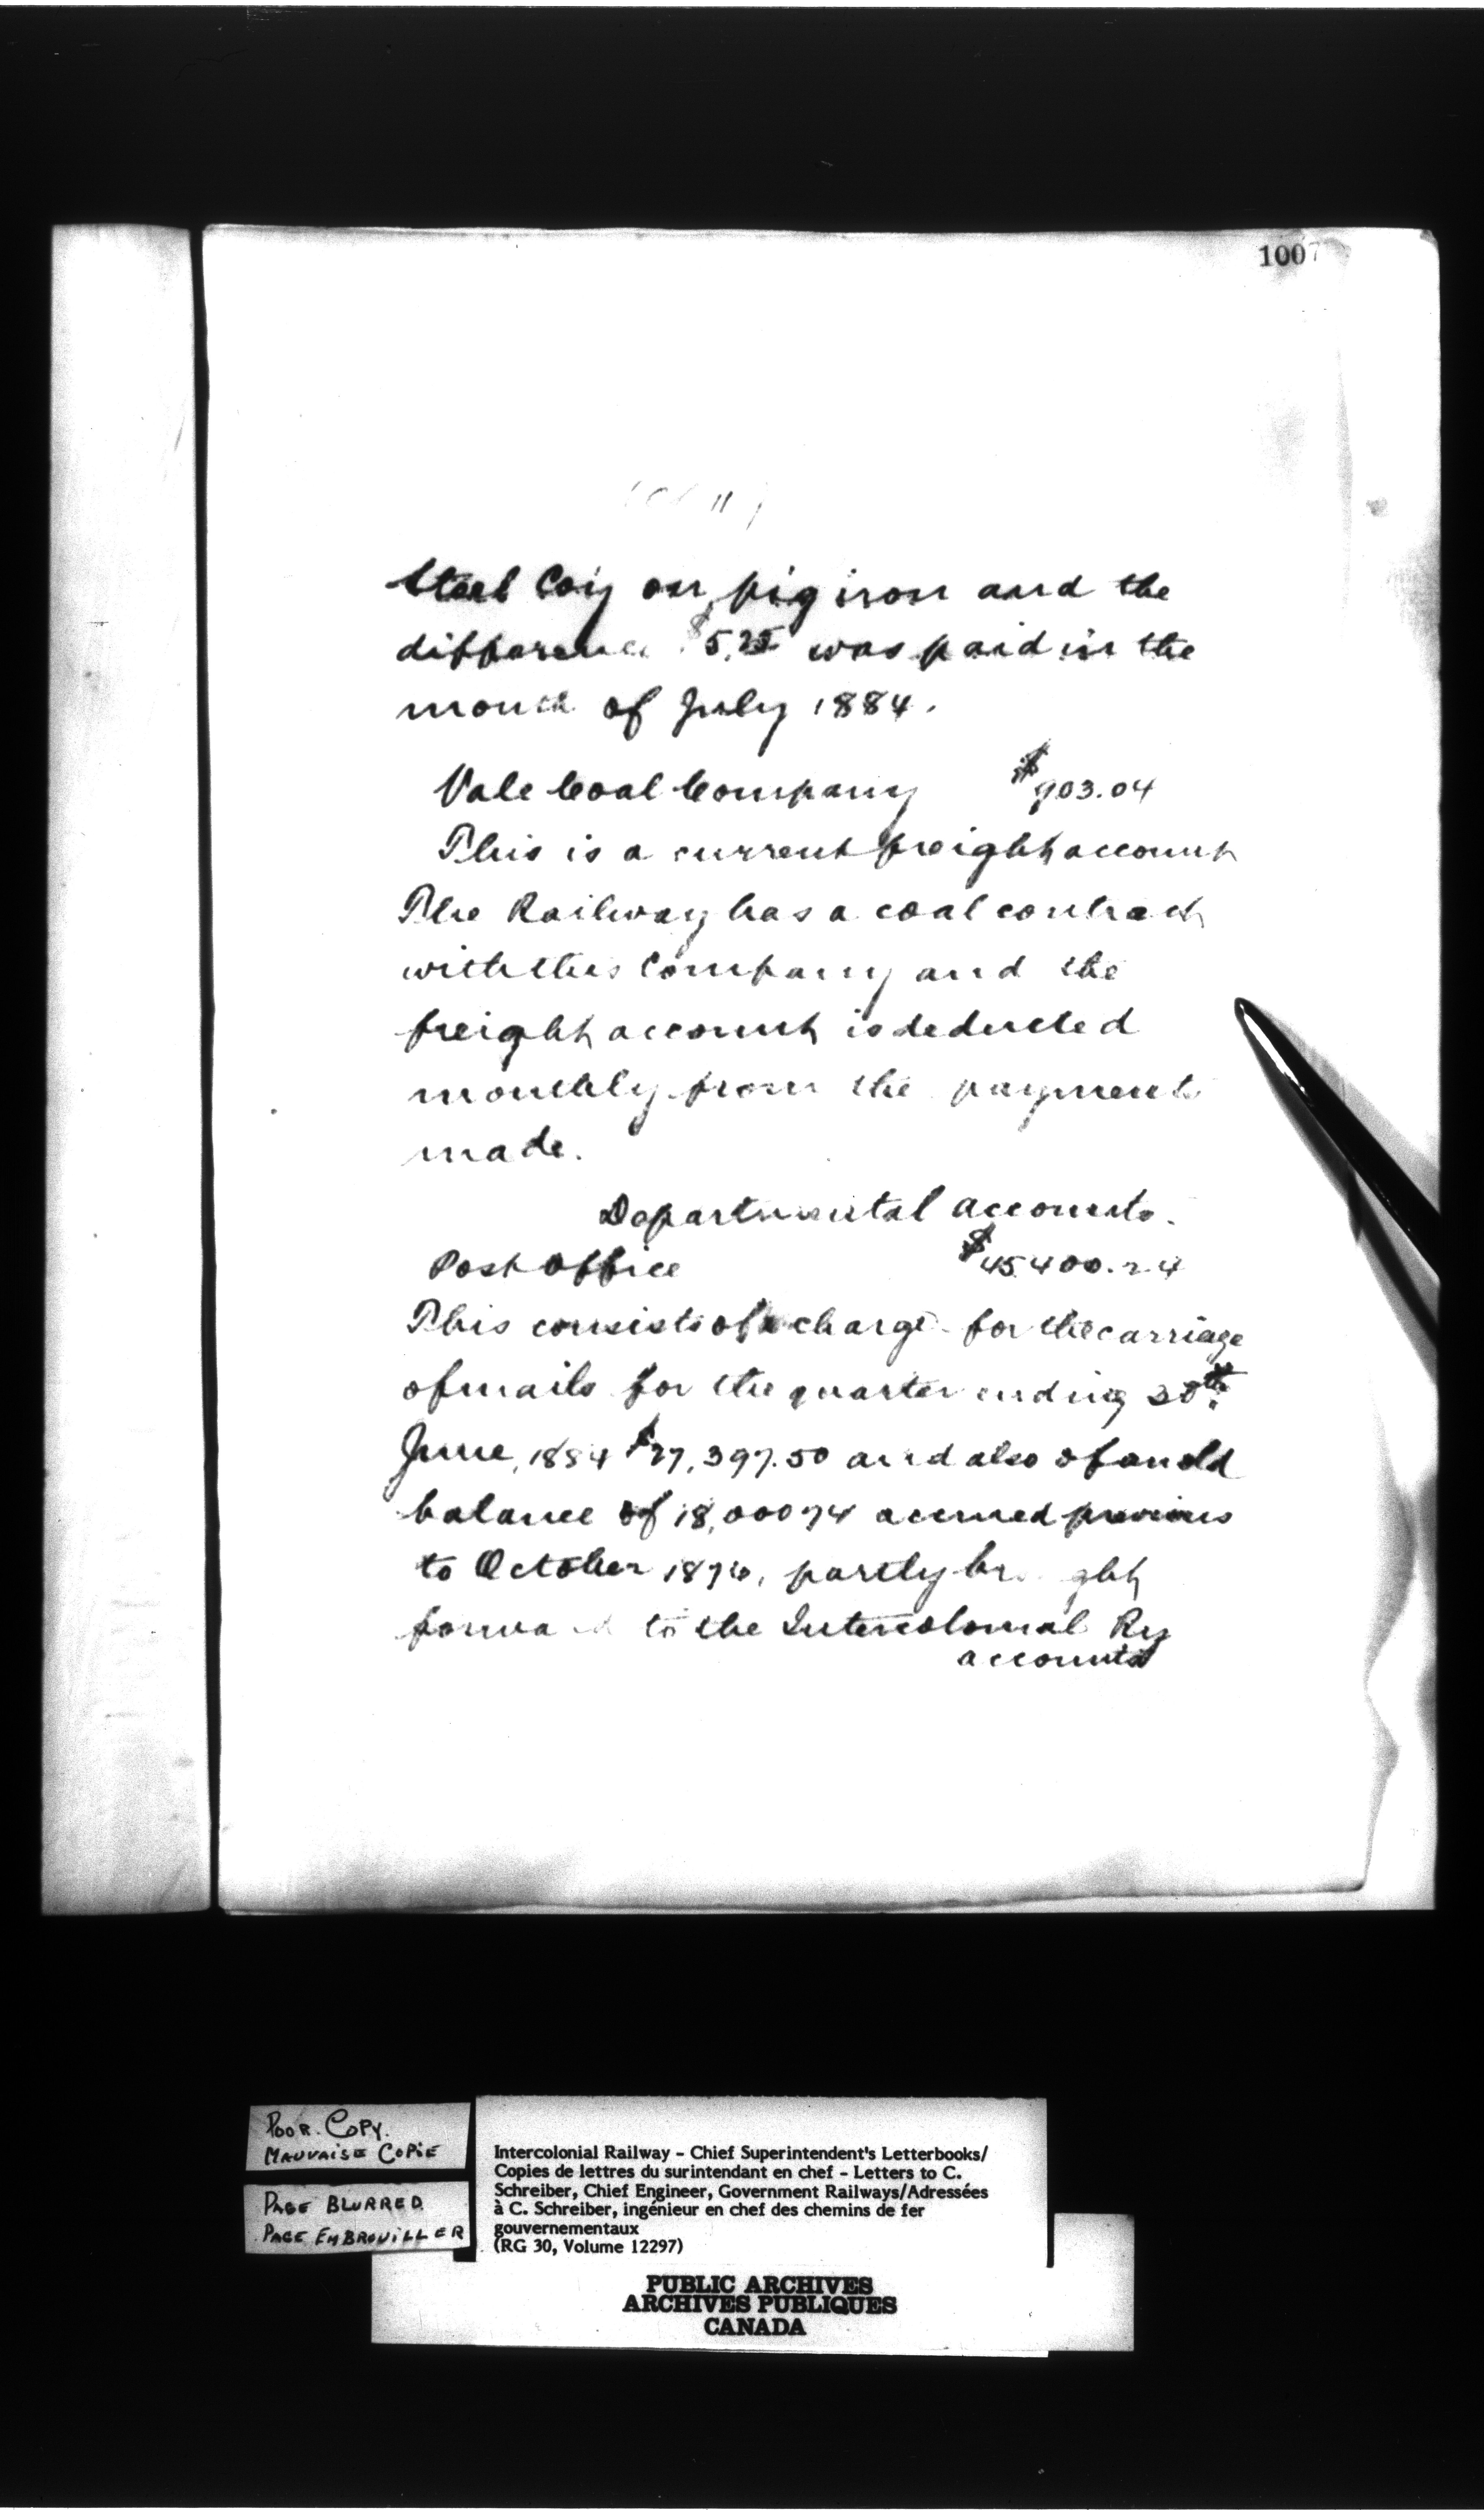 1007
Steel Coy on pig iron and the
difference $5.25 was paid in the
month of July 1884.
Vale Coal Company $903.04
This is a current freight account
The Railway has a coal contract
with this Company and the
freight account is deducted
monthly from the payments
made.
Departmental accounts.
Post Office $45400.24
This consists of charge for the carriage
of mails for the quarter ending 30th
June, 1884 $27,397.50 and also of an old
balance of 18,000 74 accrued previous
to October 1876, partly br ght
forwa d to the Intercolonial Ry
accounts
POOR. COPY.
MAUVAISE COPIE
PAGE BLURRED
PAGE EMBROUILLER
Intercolonial Railway - Chief Superintendent's Letterbooks/
Copies de lettres du surintendant en chef - Letters to C.
Schreiber, Chief Engineer, Government Railways/Adressées
à C. Schreiber, ingénieur en chef des chemins de fer
gouvernementaux
(RG 30, Volume 12297)
PUBLIC ARCHIVES
ARCHIVES PUBLIQUES
CANADA